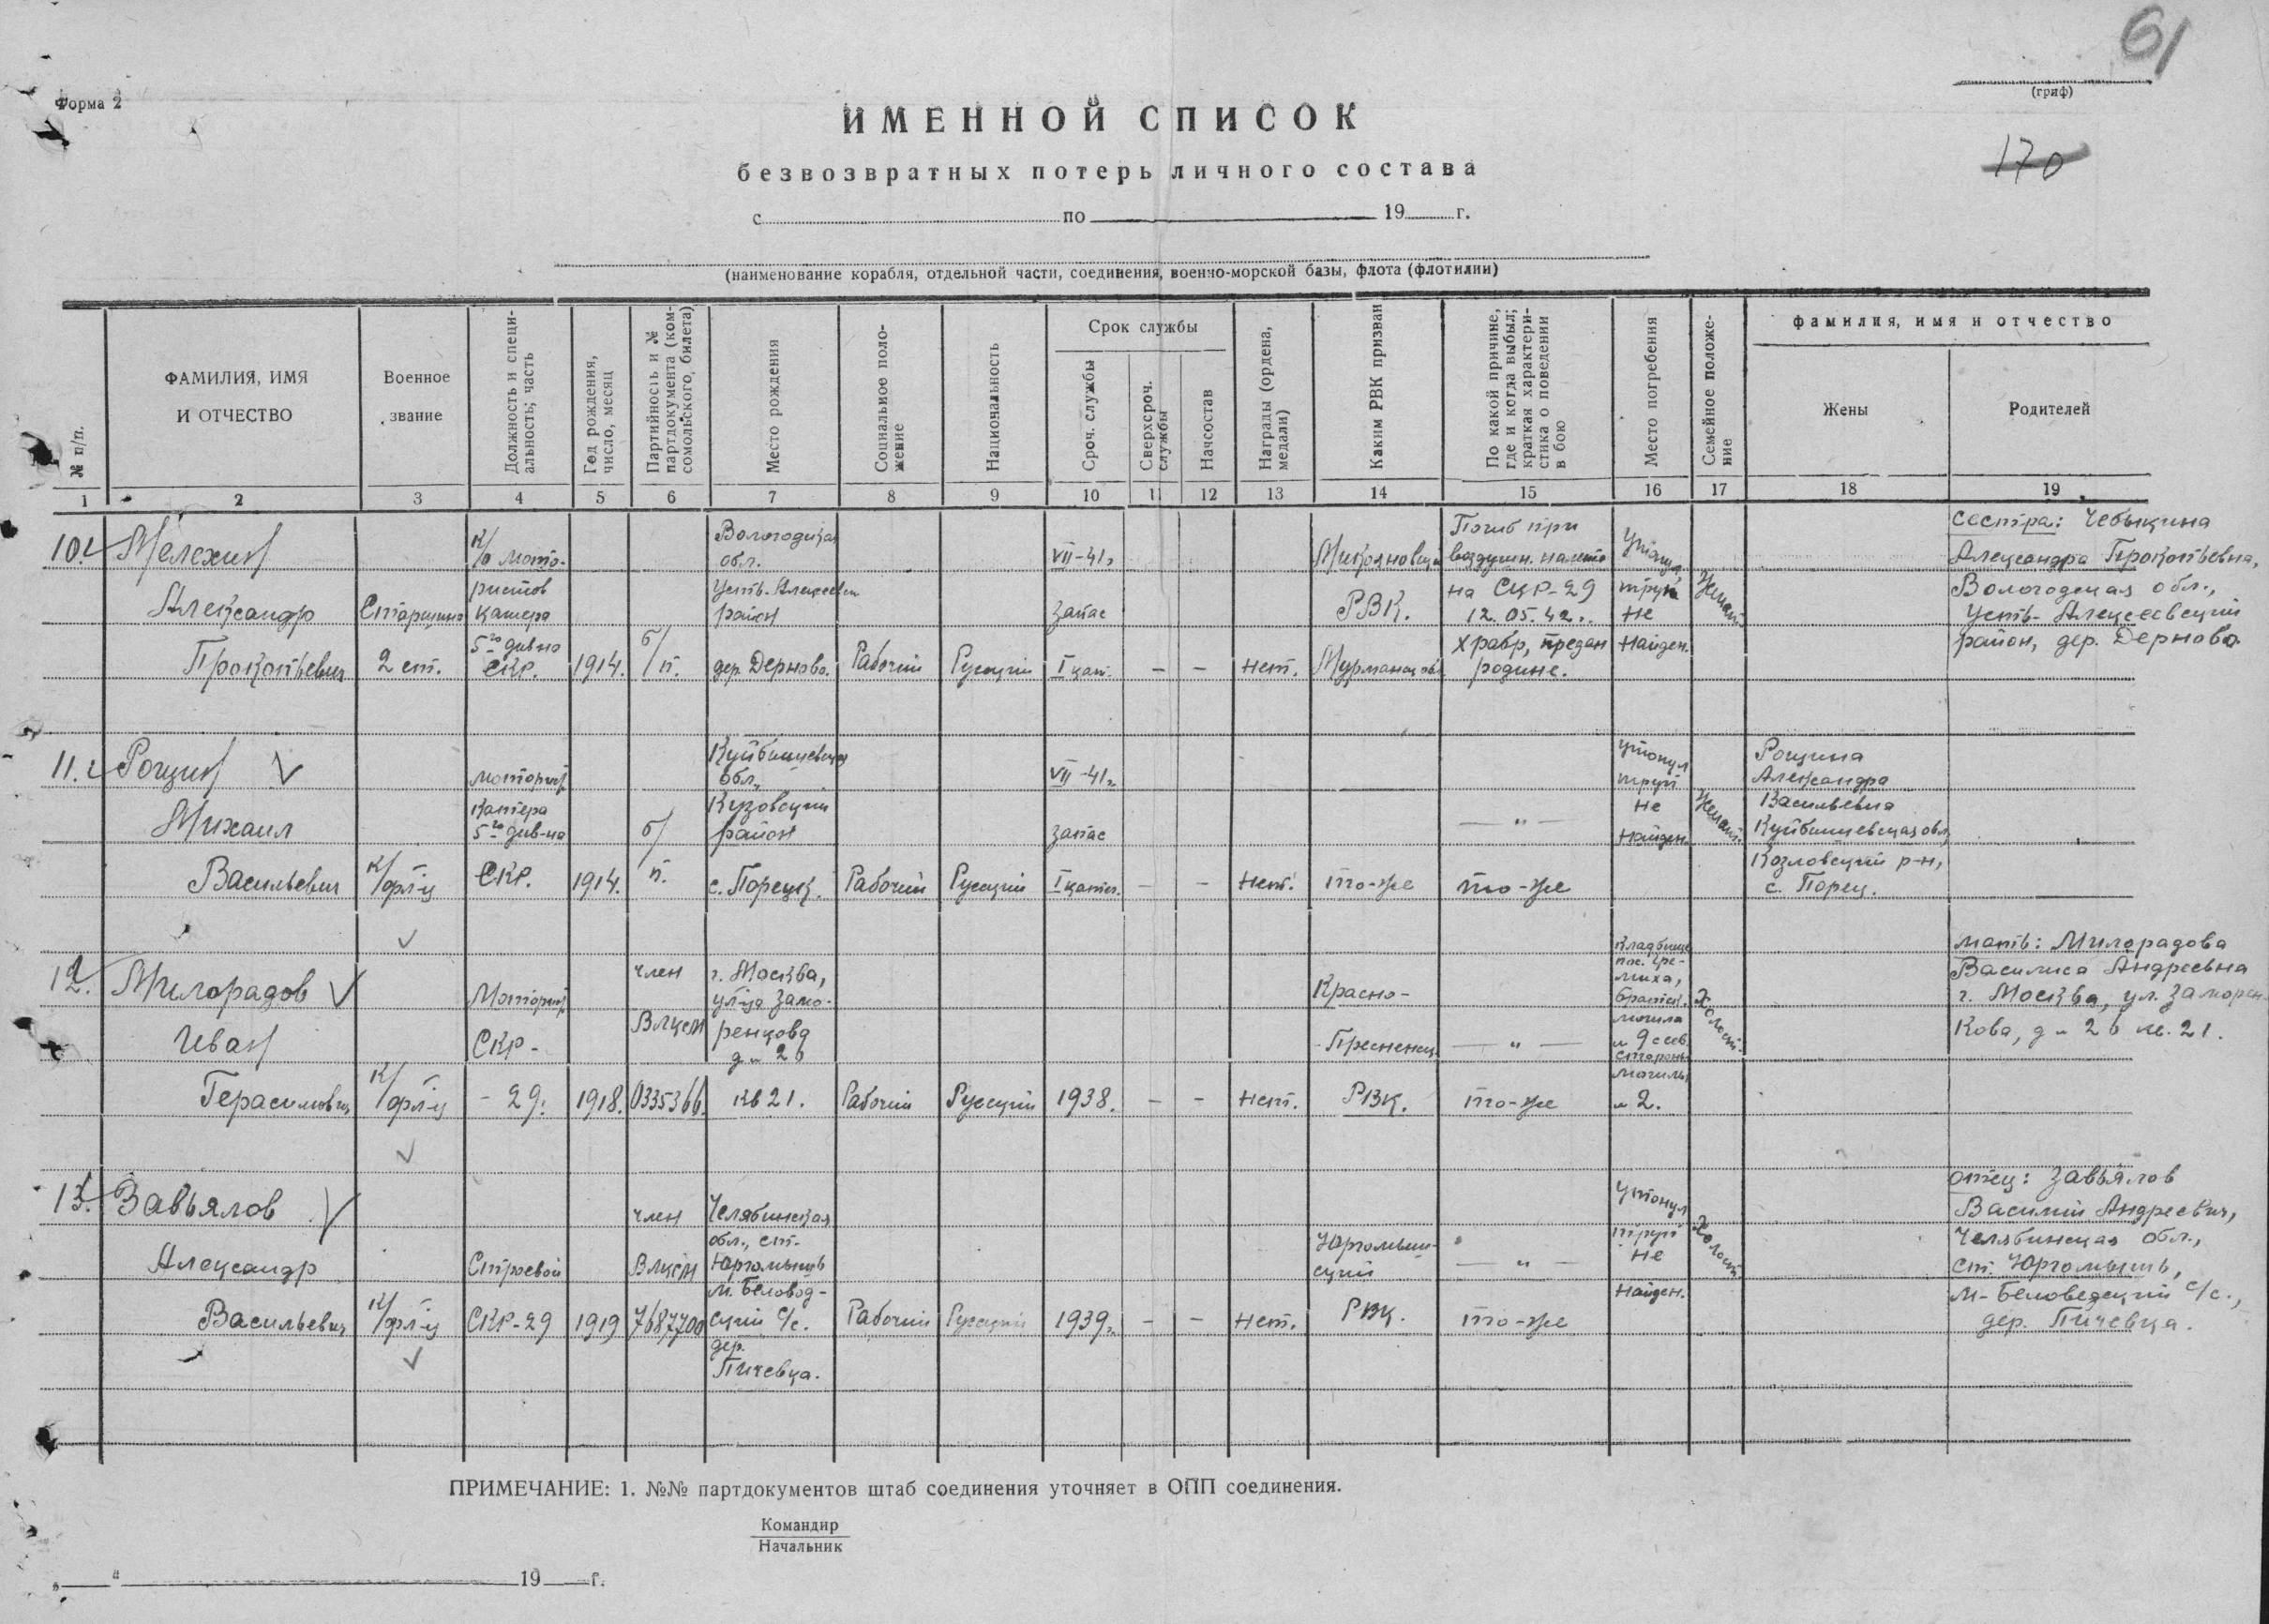 61
Форма 2
(гриф)
ИМЕННОЙ СПИСОК
безвозвратных потерь личного состава
170
с по 19 г.
(наименование корабля, отдельной части, соединения, военно-морской базы, флота (флотилии)
№ п/п.
ФАМИЛИЯ, ИМЯ
И ОТЧЕСТВО
Военное
звание
Должность и специ-
альность; часть
Год рождения,
число, месяц
Партийность и №
партдокумента (ком-
сомольского, билета)
Место рождения
Социальное поло-
жение
Национальность
Срок службы
Сроч. службы
Сверхсроч.
службы
Начсостав
Награды (ордена,
медали)
Каким РВК призван
По какой причине,
где и когда выбыл;
краткая характери-
стика о поведении
в бою
Место погребения
Семейное положе-
ние
фамилия, имя и отчество
Жены
Родителей
1 2 3 4 5 6 7 8 9 10 11 12 13 14 15 16 17 18 19
10.
Мелехин
Александр
Прокопьевич
Старшина
2 ст.
К/о мото-
ристов
катера
5го див-на
СКР.
1914.
б/
п.
Вологодская
обл.
Усть-Алексеевск
район
дер. Дерново.
Рабочий
Русский
VII-41г.
запас
I кат.
-
-
нет.
Микояновский
РВК.
Мурманской
Погиб при
воздушн. налете
на СКР-29
12.05.42г.
храбр, предан
родине.
Утонул
труп
не
найден.
Женат
сестра: Чебыкина
Александра Прокопьевна,
Вологодская обл.,
Усть-Алексеевский
район, дер. Дерново
11.
Рощин
Михаил
Васильевич
к/
фл-ц
моторист
катера
5го див-на
СКР.
1914.
б/
п.
Куйбышевская
обл.,
Кузовский
район
с. Порецк.
Рабочий
Русский
VII-41г.
запас
I катег.
-
-
нет.
то-же
— " —
то-же
утонул
труп
не
найден.
Женат.
Рощина
Александра
Васильевна
Куйбышевская обл,
Козловский р-н,
с. Порец.
12.
Милорадов
Иван
Герасимович
к/
фл-ц
Моторист
СКР-
- 29.
1918.
член
ВЛКСМ
0335366.
г. Москва,
ул-ца Замо-
ренкова
д. № 26
кв 21.
Рабочий
Русский
1938.
-
-
нет.
Красно-
Пресненск
РВК.
— " —
то-же
Кладбище
пос. Гре-
миха,
братск.
могила
№ 9 с сев.
стороны
могилы
№ 2.
Холост.
мать: Милорадова
Василиса Андреевна
г. Москва, ул. Заморен-
кова, д № 26 кв. 21.
13.
Завьялов
Александр
Васильевич
к/
фл-ц
Строевой
СКР-29
1919
член
ВЛКСМ
7687700
Челябинская
обл., ст.
Юргомышь
М. Беловод-
ский с/с.
дер.
Пичевка.
Рабочий
Русский
1939г.
-
-
нет.
Юргомыш-
ский
РВК.
— " —
то-же
Утонул
труп
не
найден.
Холост
отец: Завьялов
Василий Андреевич,
Челябинская обл.,
ст. Юргомышь,
М-Беловедский с/с.,
дер. Пичевка.
ПРИМЕЧАНИЕ: 1. №№ партдокументов штаб соединения уточняет в ОПП соединения.
Командир
Начальник
„ “ 19 г.